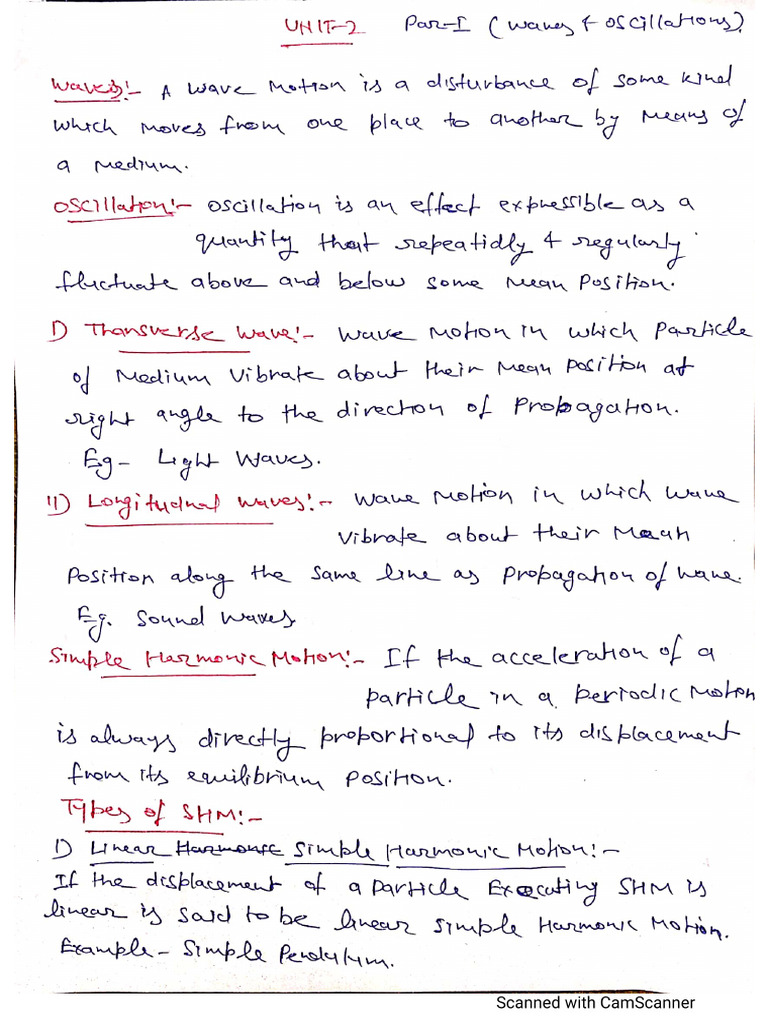 UNIT-2 Par-I (waves & oscillations)
Waves:- A wave motion is a disturbance of some kind
which moves from one place to another by means of
a medium.
Oscillation:- Oscillation is an effect expressible as a
quantity that repeatidly & regularly
fluctuate above and below some mean position.
I) Transverse wave:- Wave motion in which particle
of medium vibrate about their mean position at
right angle to the direction of propagation.
Eg- Light waves.
II) Longitudnal waves:- Wave motion in which wave
vibrate about their mean
position along the same line as propagation of wave.
Eg. Sound waves
Simple Harmonic Motion:- If the acceleration of a
particle in a periodic motion
is always directly proportional to its displacement
from its equilibrium position.
Types of SHM:-
I) Linear Harmonic Simple Harmonic Motion:-
If the displacement of a particle Executing SHM is
linear is said to be linear simple Harmonic Motion.
Example - Simple Pendulum.
Scanned with CamScanner